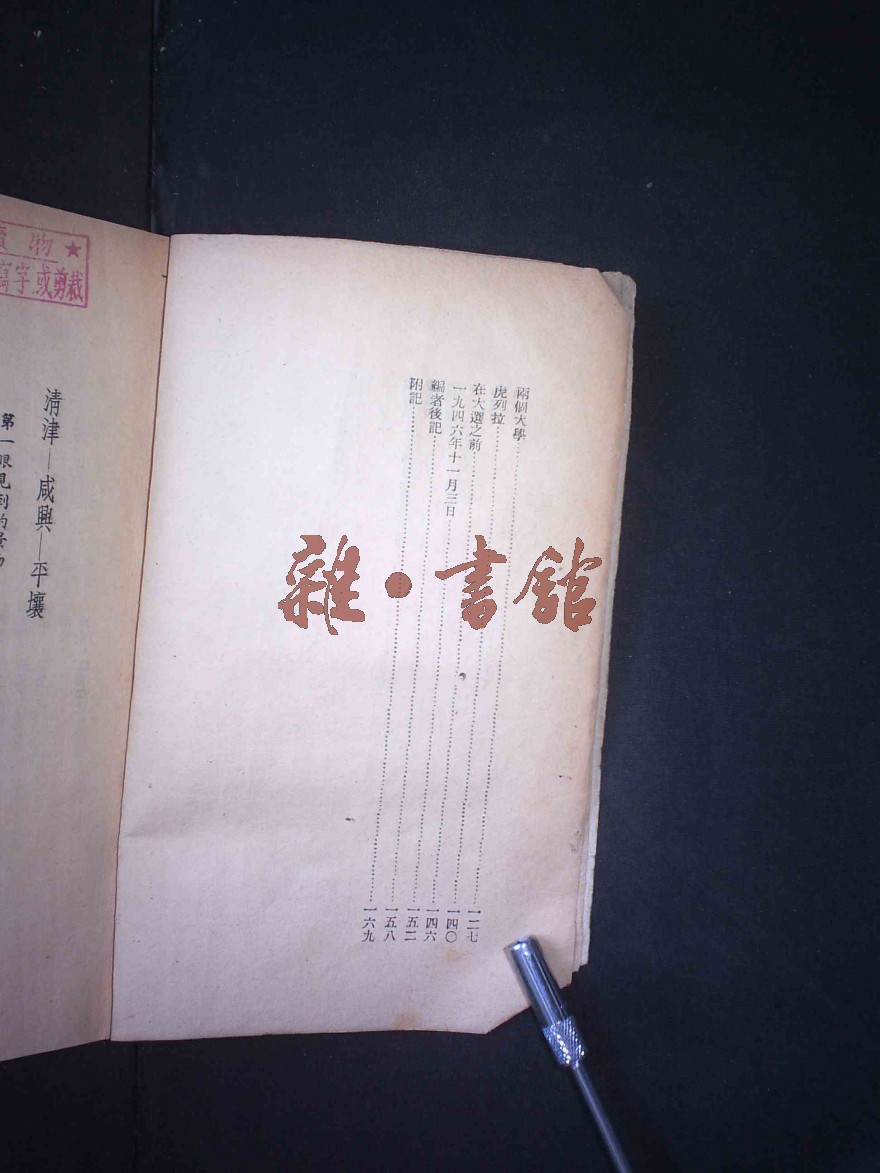 兩個大學……一二七
虎列拉……一四〇
在大選之前……一四六
一九四六年十一月三日……一五二
編者後記……一五八
附記……一六九
雜•書館
物★
字或剪裁
清津—咸興—平壤
第一眼見到的